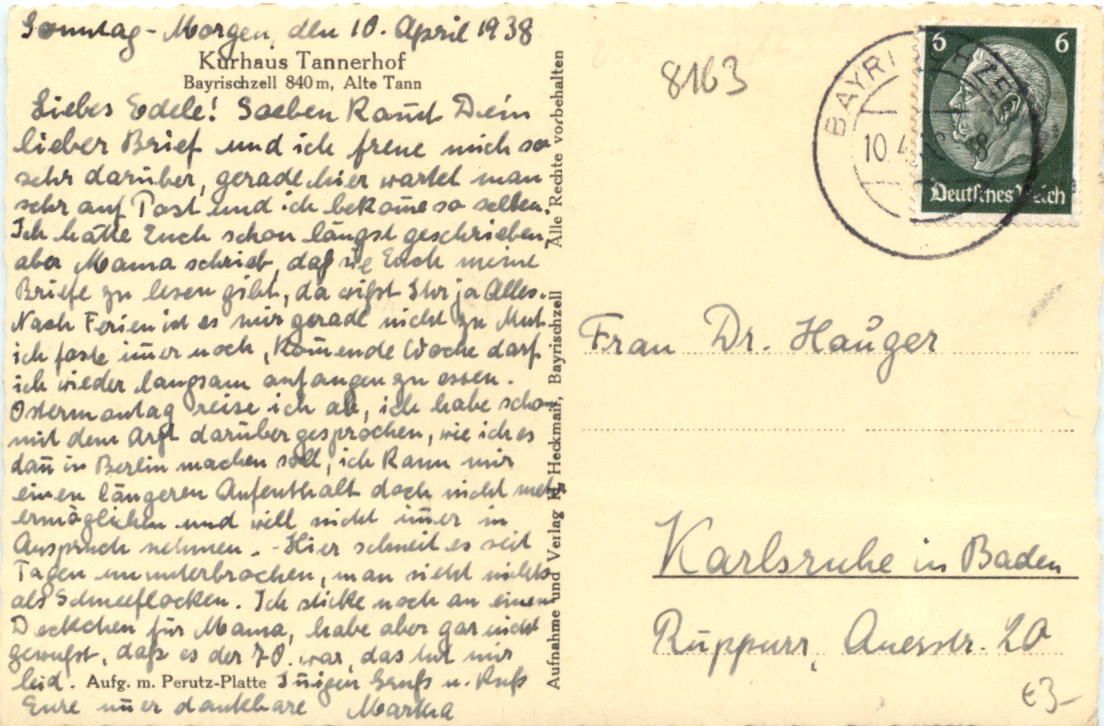 Sonntag-Morgen, den 10. April 1938
Kurhaus Tannerhof
Bayrischzell 840 m, Alte Tann
Liebes Edele! Soeben kam Dein
lieber Brief und ich freue mich so
sehr darüber, gerade hier wartet man
sehr auf Post und ich bekom̄e so selten.
Ich hätte Euch schon längst geschrieben,
aber Mama schrieb, daß sie Euch meine
Briefe zu lesen gibt, da wißt Ihr ja Alles.
Nach Ferien ist es mir gerade nicht zu Mut.
ich faste im̄er noch, kom̄ende Woche darf
ich wieder langsam anfangen zu essen.
Ostermontag reise ich ab, ich habe schon
mit dem Arzt darüber gesprochen, wie ich es
dan̄ in Berlin machen soll, ich kann mir
einen längeren Aufenthalt doch nicht mehr
ermöglichen und will nicht im̄er in
Anspruch nehmen. - Hier schneit es seit
Tagen ununterbrochen, man sieht nichts
als Schneeflocken. Ich sticke noch an einem
Deckchen für Mama, habe aber gar nicht
gewußt, daß es der 70. war, das tut mir
leid. Aufg. m. Perutz-Platte In̄igen Gruß u. Kuß
Eure im̄er dankbare Martha
Aufnahme und Verlag H. Heckmair, Bayrischzell Alle Rechte vorbehalten
8163
BAYRISCHZELL
10.4.38
6 6
Deutsches Reich
Frau Dr. Hauger
Karlsruhe in Baden
Rüppurr, Auerstr. 20
€3-